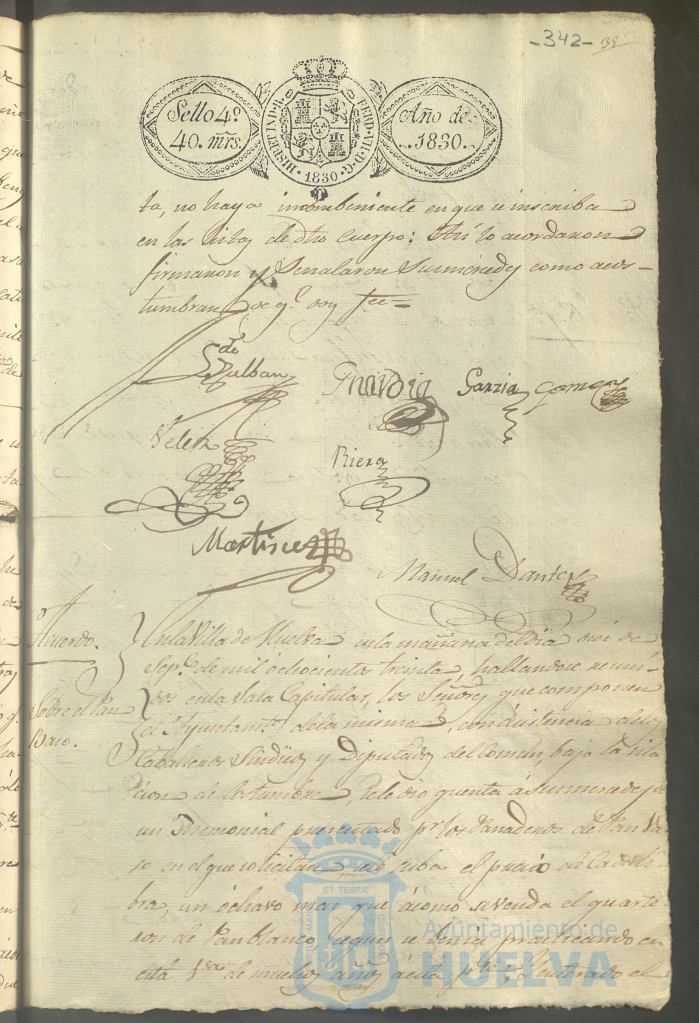 -342-
Sello 4º
40. mrs.
HISP. ET IND. R. FERD. VII. D. G. 1830
Año de
1830.
ta, no haya incombeniente en que se inscriba
en las listas de dho Cuerpo: Asi lo acordaron
firmaron y Señalaron Sus mercedes como acos-
tumbran de qe doy fee=
Guardia Garzia Gomez
Velez
Riera
Martinez
Manuel
Acuerdo.
Sobre el Pan
Bazo.
En la Villa de Huelva en la mañana del dia de
Sepe de mil ochocientos treinta, hallandose reuni-
dos en la Sala Capitular, los Señores que componen
el Ayuntamto de la misma, con asistencia de los
Caballeros Sindicos y Diputados del Comun, bajo la cita-
cion de costumbre, Se le dio quenta á Sus mercedes de
un Memorial presentado pr los Panaderos de Pan Ba-
zo en el que solicitan, se suba el precio de la
libra, un óchavo mas que ácomo se venda el quarte-
ron de Pan blanco, segun se practicando en
esta Va de muchos años á esta pte; Y enterado el
ET TERRAE
Ayuntamiento de
HUELVA